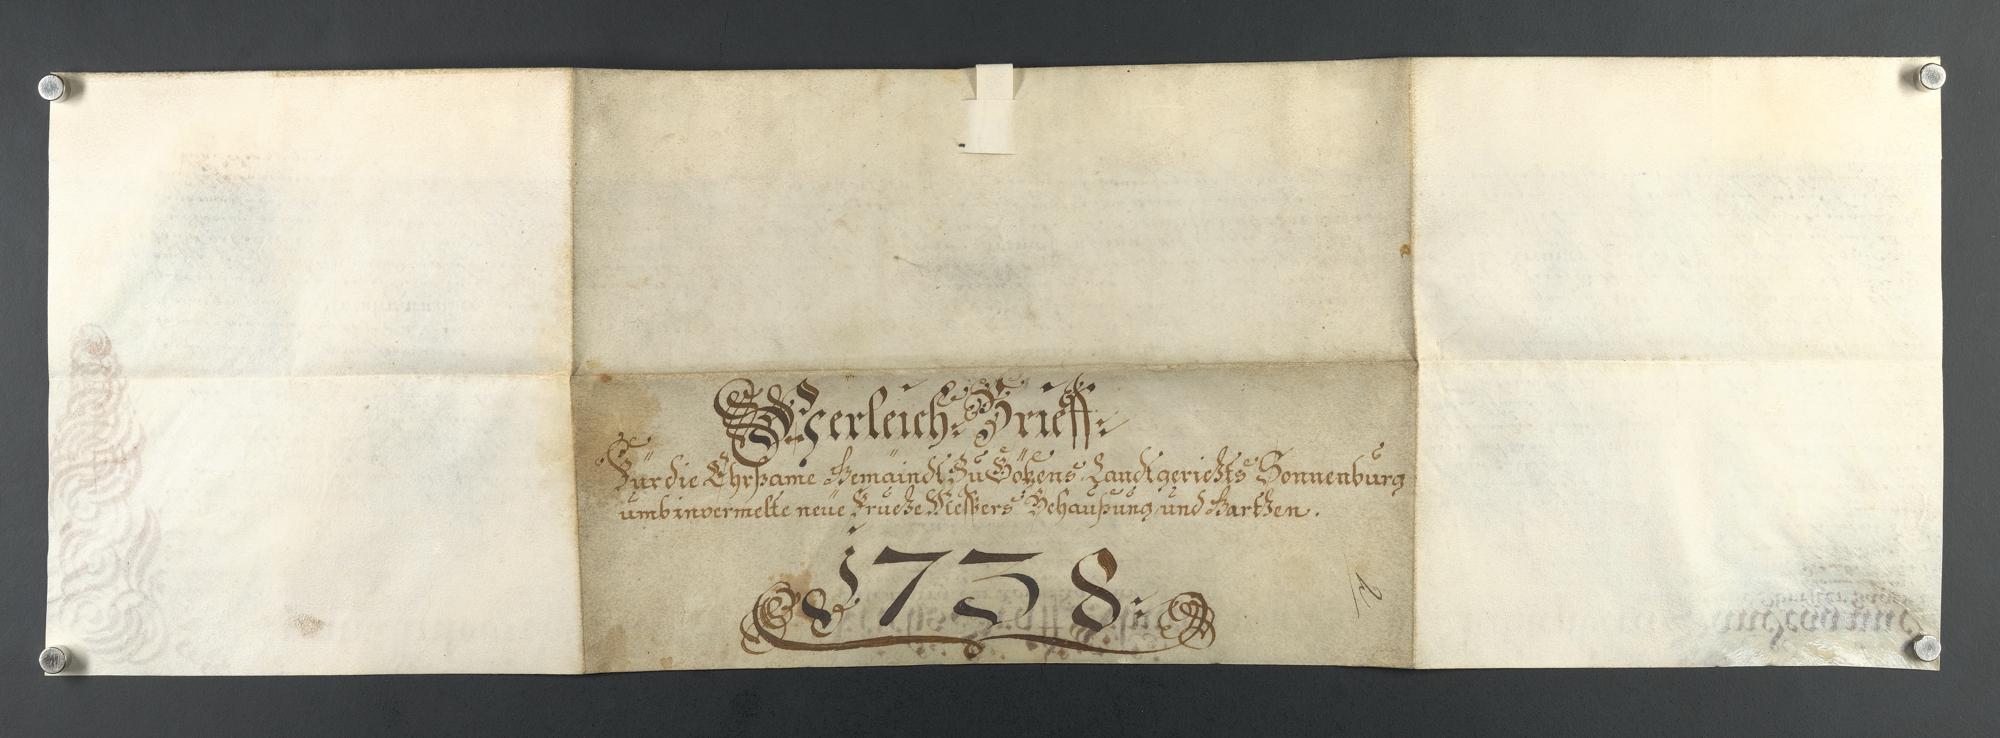 Verleich: Brieff:
Für die Ehrsame Gemaindt Zu Götzens Landtgerichts Sonnenburg
umb invermelte neüe Früehe Messers Behaußung und Gartten.
1738: